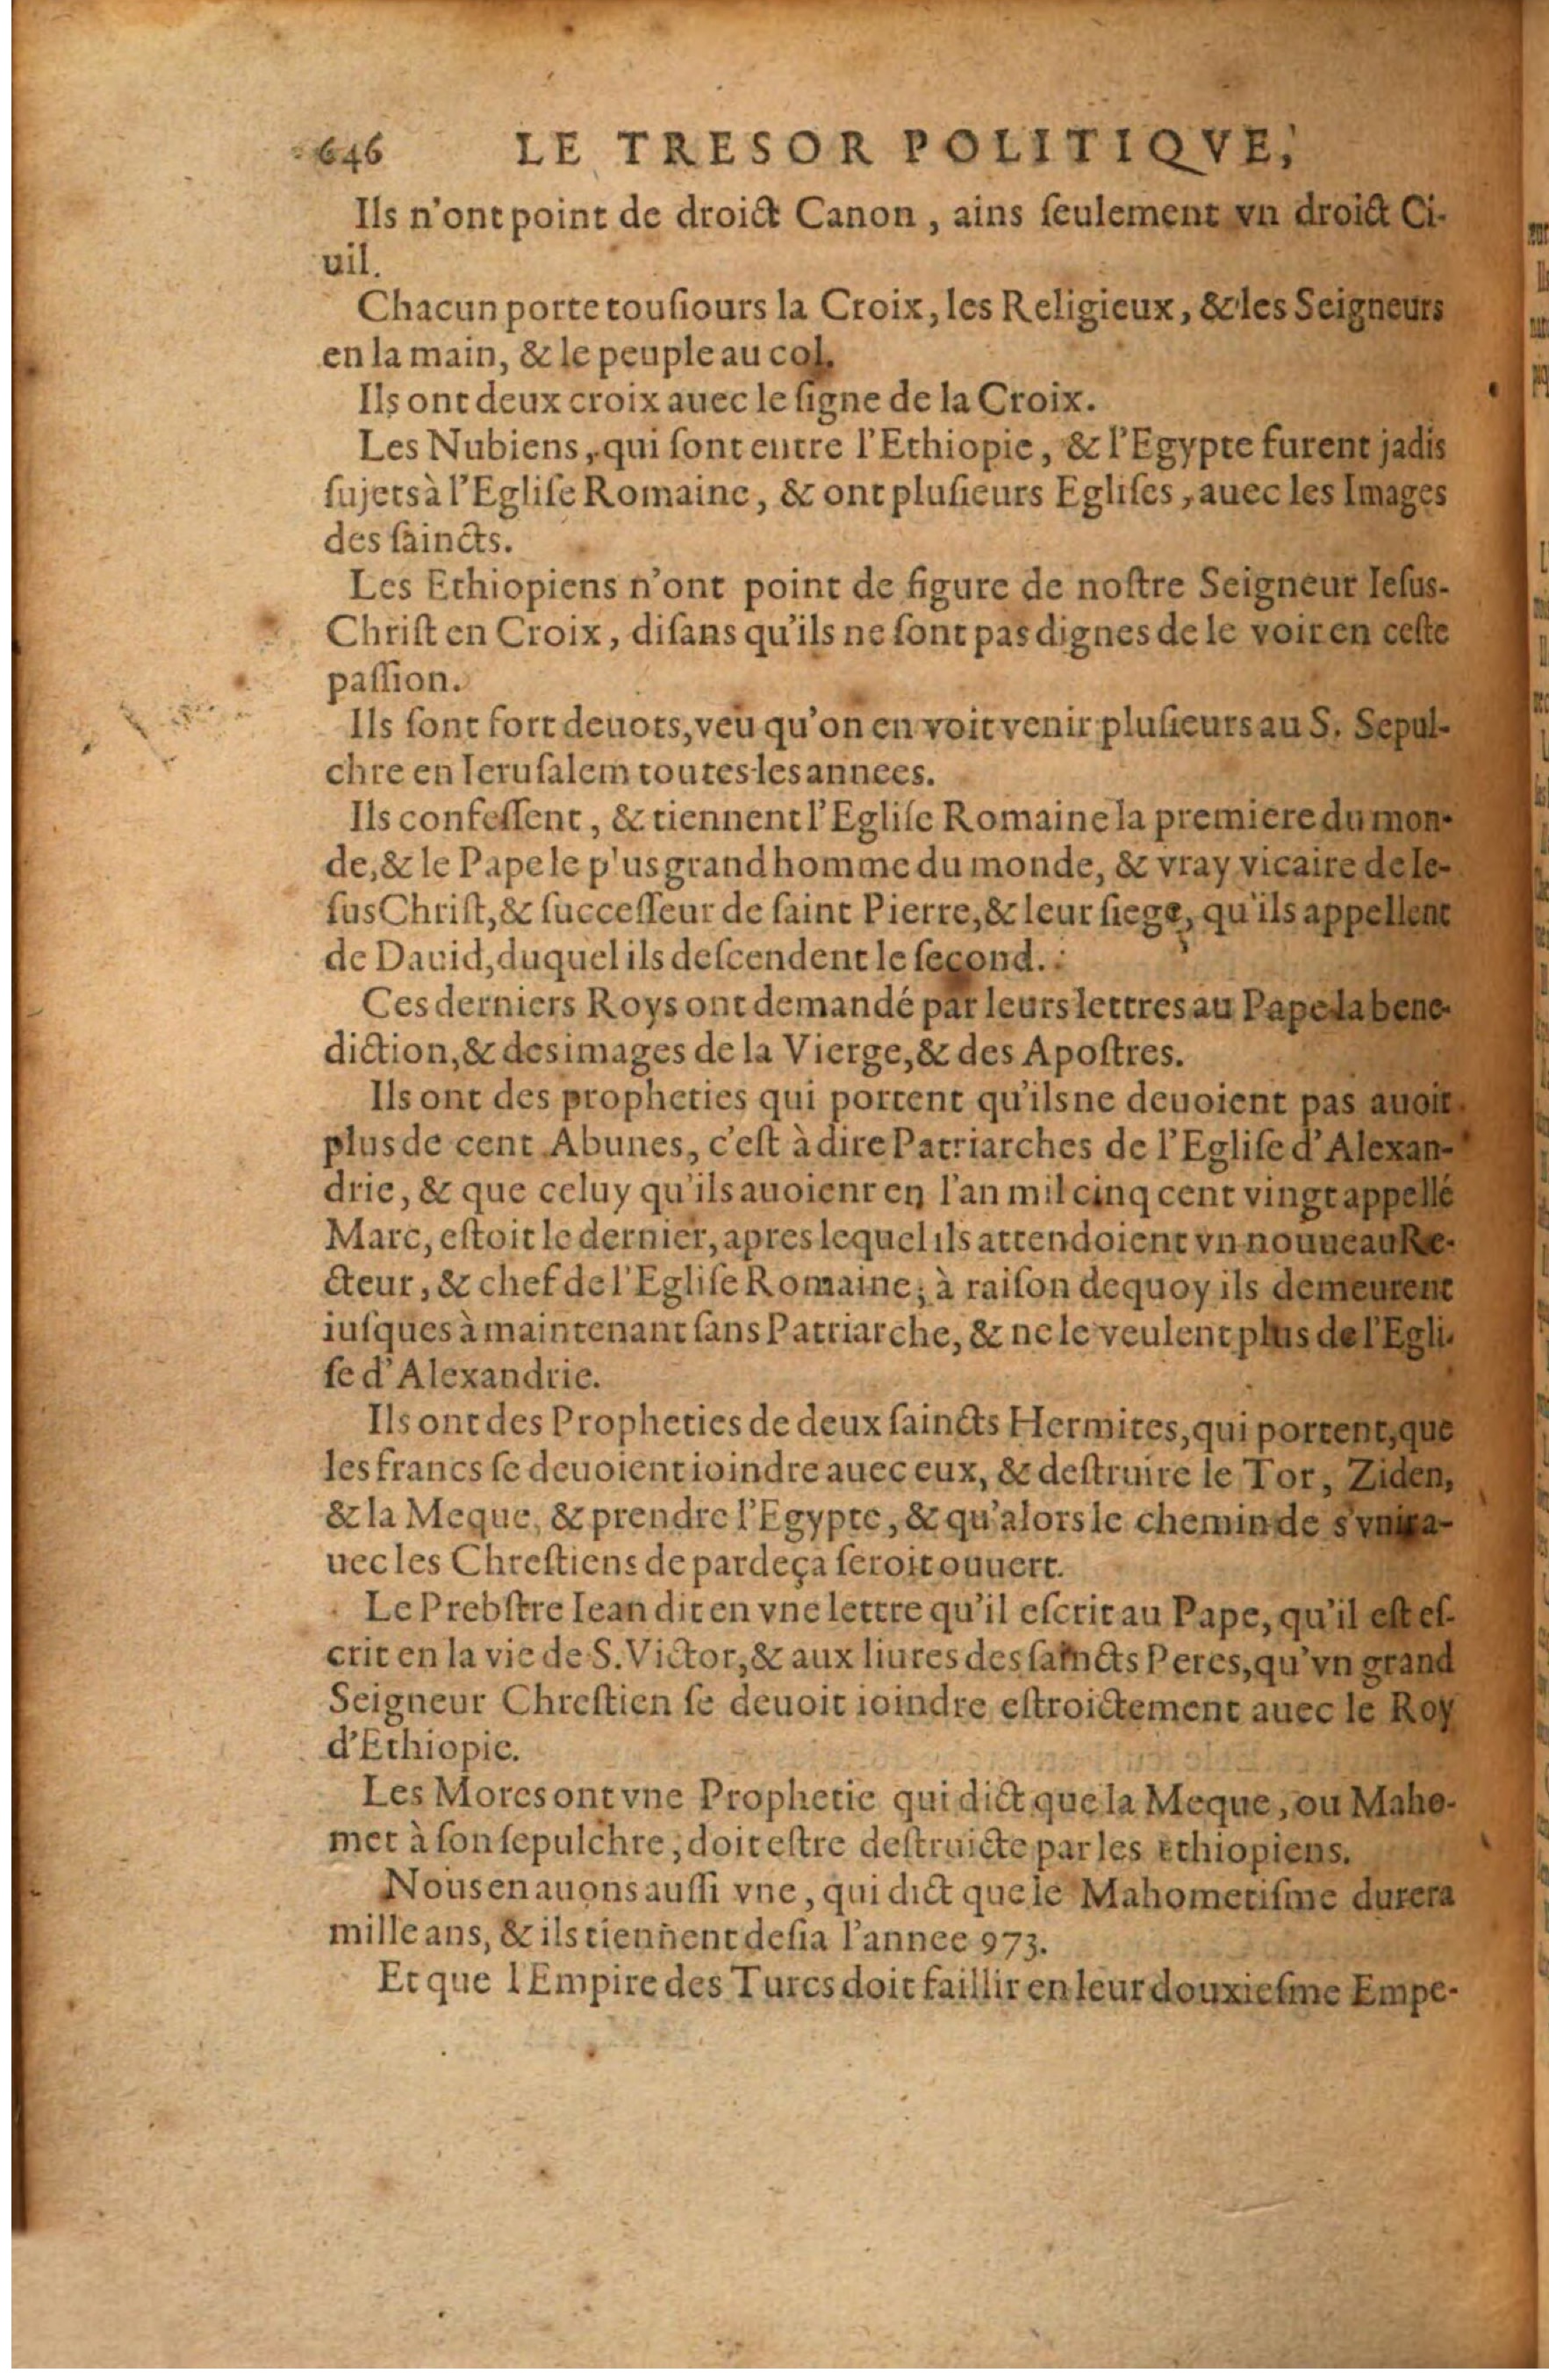 646 LE TRESOR POLITIQVE,
Ils n'ont point de droict Canon, ains ſeulement vn droict Ci-
uil.
Chacun porte touſiours la Croix, les Religieux, & les Seigneurs
en la main, & le peuple au col.
Ils ont deux croix auec le ſigne de la Croix.
Les Nubiens, qui ſont entre l'Ethiopie, & l'Egypte furent jadis
ſujets à l'Egliſe Romaine, & ont pluſieurs Egliſes, auec les Images
des ſaincts.
Les Ethiopiens n'ont point de figure de noſtre Seigneur Ieſus-
Chriſt en Croix, diſans qu'ils ne ſont pas dignes de le voir en ceſte
paſſion.
Ils ſont fort deuots, veu qu'on en voit venir pluſieurs au S. Sepul-
chre en Ieruſalem toutes les annees.
Ils confeſſent, & tiennent l'Egliſe Romaine la premiere du mon-
de, & le Pape le p'us grand homme du monde, & vray vicaire de Ie-
ſus Chriſt, & ſucceſſeur de ſaint Pierre, & leur ſiege, qu'ils appellent
de Dauid, duquel ils deſcendent le ſecond.
Ces derniers Roys ont demandé par leurs lettres au Pape la bene-
diction, & des images de la Vierge, & des Apoſtres.
Ils ont des propheties qui portent qu'ils ne deuoient pas auoir
plus de cent Abunes, c'eſt à dire Patriarches de l'Egliſe d'Alexan-
drie, & que celuy qu'ils auoienr en l'an mil cinq cent vingt appellé
Marc, eſtoit le dernier, apres lequel ils attendoient vn nouueau Re-
cteur, & chef de l'Egliſe Romaine; à raiſon dequoy ils demeurent
iuſques à maintenant ſans Patriarche, & ne le veulent plus de l'Egli-
ſe d'Alexandrie.
Ils ont des Propheties de deux ſaincts Hermites, qui portent, que
les francs ſe deuoient ioindre auec eux, & deſtruire le Tor, Ziden,
& la Meque, & prendre l'Egypte, & qu'alors le chemin de s'vnir a-
uec les Chreſtiens de pardeça ſeroit ouuert.
Le Prebſtre Iean dit en vne lettre qu'il eſcrit au Pape, qu'il eſt eſ-
crit en la vie de S. Victor, & aux liures des ſaincts Peres, qu'vn grand
Seigneur Chreſtien ſe deuoit ioindre eſtroictement auec le Roy
d'Ethiopie.
Les Mores ont vne Prophetie qui dict que la Meque, ou Maho-
met à ſon ſepulchre, doit eſtre deſtruicte par les Ethiopiens.
Nous en auons auſſi vne, qui dict que le Mahometiſme durera
mille ans, & ils tiennent deſia l'annee 973.
Et que l Empire des Turcs doit faillir en leur douxieſme Empe-